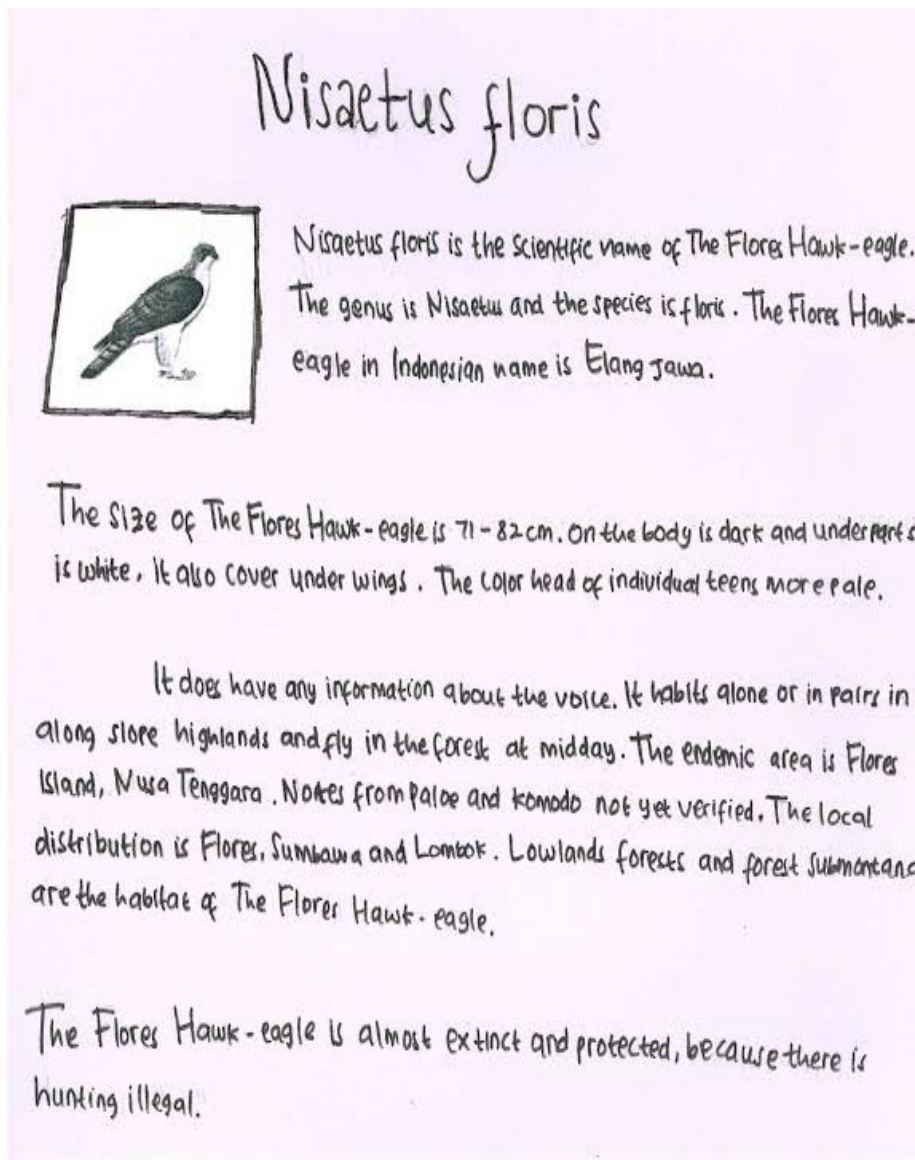 Nisaetus floris
Nisaetus floris is the scientific name of The Flores Hawk-eagle.
The genus is Nisaetus and the species is floris. The Flores Hawk-
eagle in Indonesian name is Elang Jawa.
The size of The Flores Hawk-eagle is 71-82 cm. On the body is dark and underparts
is white, it also cover under wings. The color head of individual teens more pale.
It does have any information about the voice. It habits alone or in pairs in
along slope highlands and fly in the forest at midday. The endemic area is Flores
Island, Nusa Tenggara. Notes from Paloe and Komodo not yet verified. The local
distribution is Flores, Sumbawa and Lombok. Lowlands forests and forest submontane
are the habitat of The Flores Hawk-eagle.
The Flores Hawk-eagle is almost extinct and protected, because there is
hunting illegal.